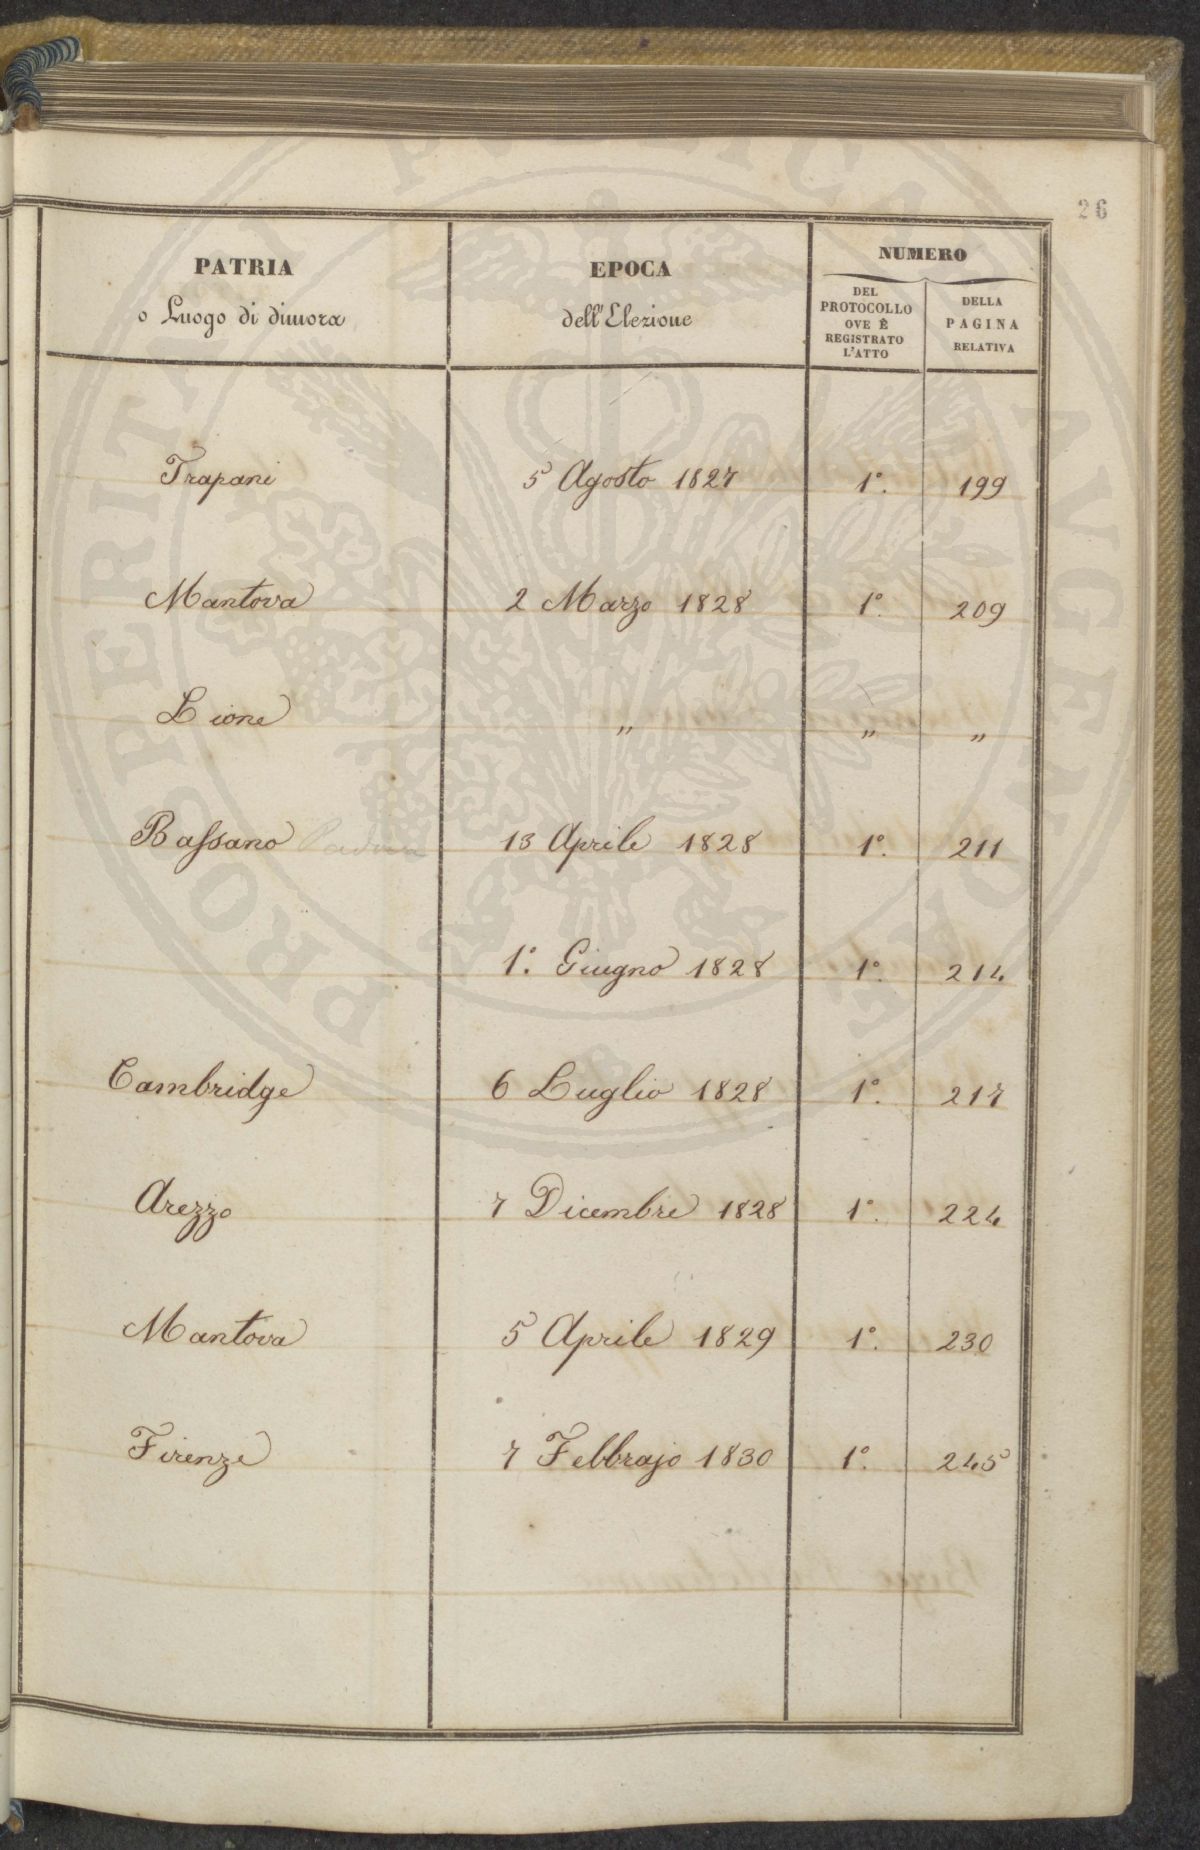 26
PATRIA
o Luogo di dimora
EPOCA
dell'Elezione
NUMERO
DEL
PROTOCOLLO
OVE È
REGISTRATO
L'ATTO
DELLA
PAGINA
RELATIVA
Trapani 5 Agosto 1827 1°. 199
Mantova 2 Marzo 1828 1°. 209
Lione " " "
Bassano Padova 13 Aprile 1828 1°. 211
1°. Giugno 1828 1°. 214
Cambridge 6 Luglio 1828 1°. 217
Arezzo 7 Dicembre 1828 1°. 224
Mantova 5 Aprile 1829 1°. 230
Firenze 7 Febbrajo 1830 1°. 245
PROSPERITATI PUBLICAE AUGENDAE